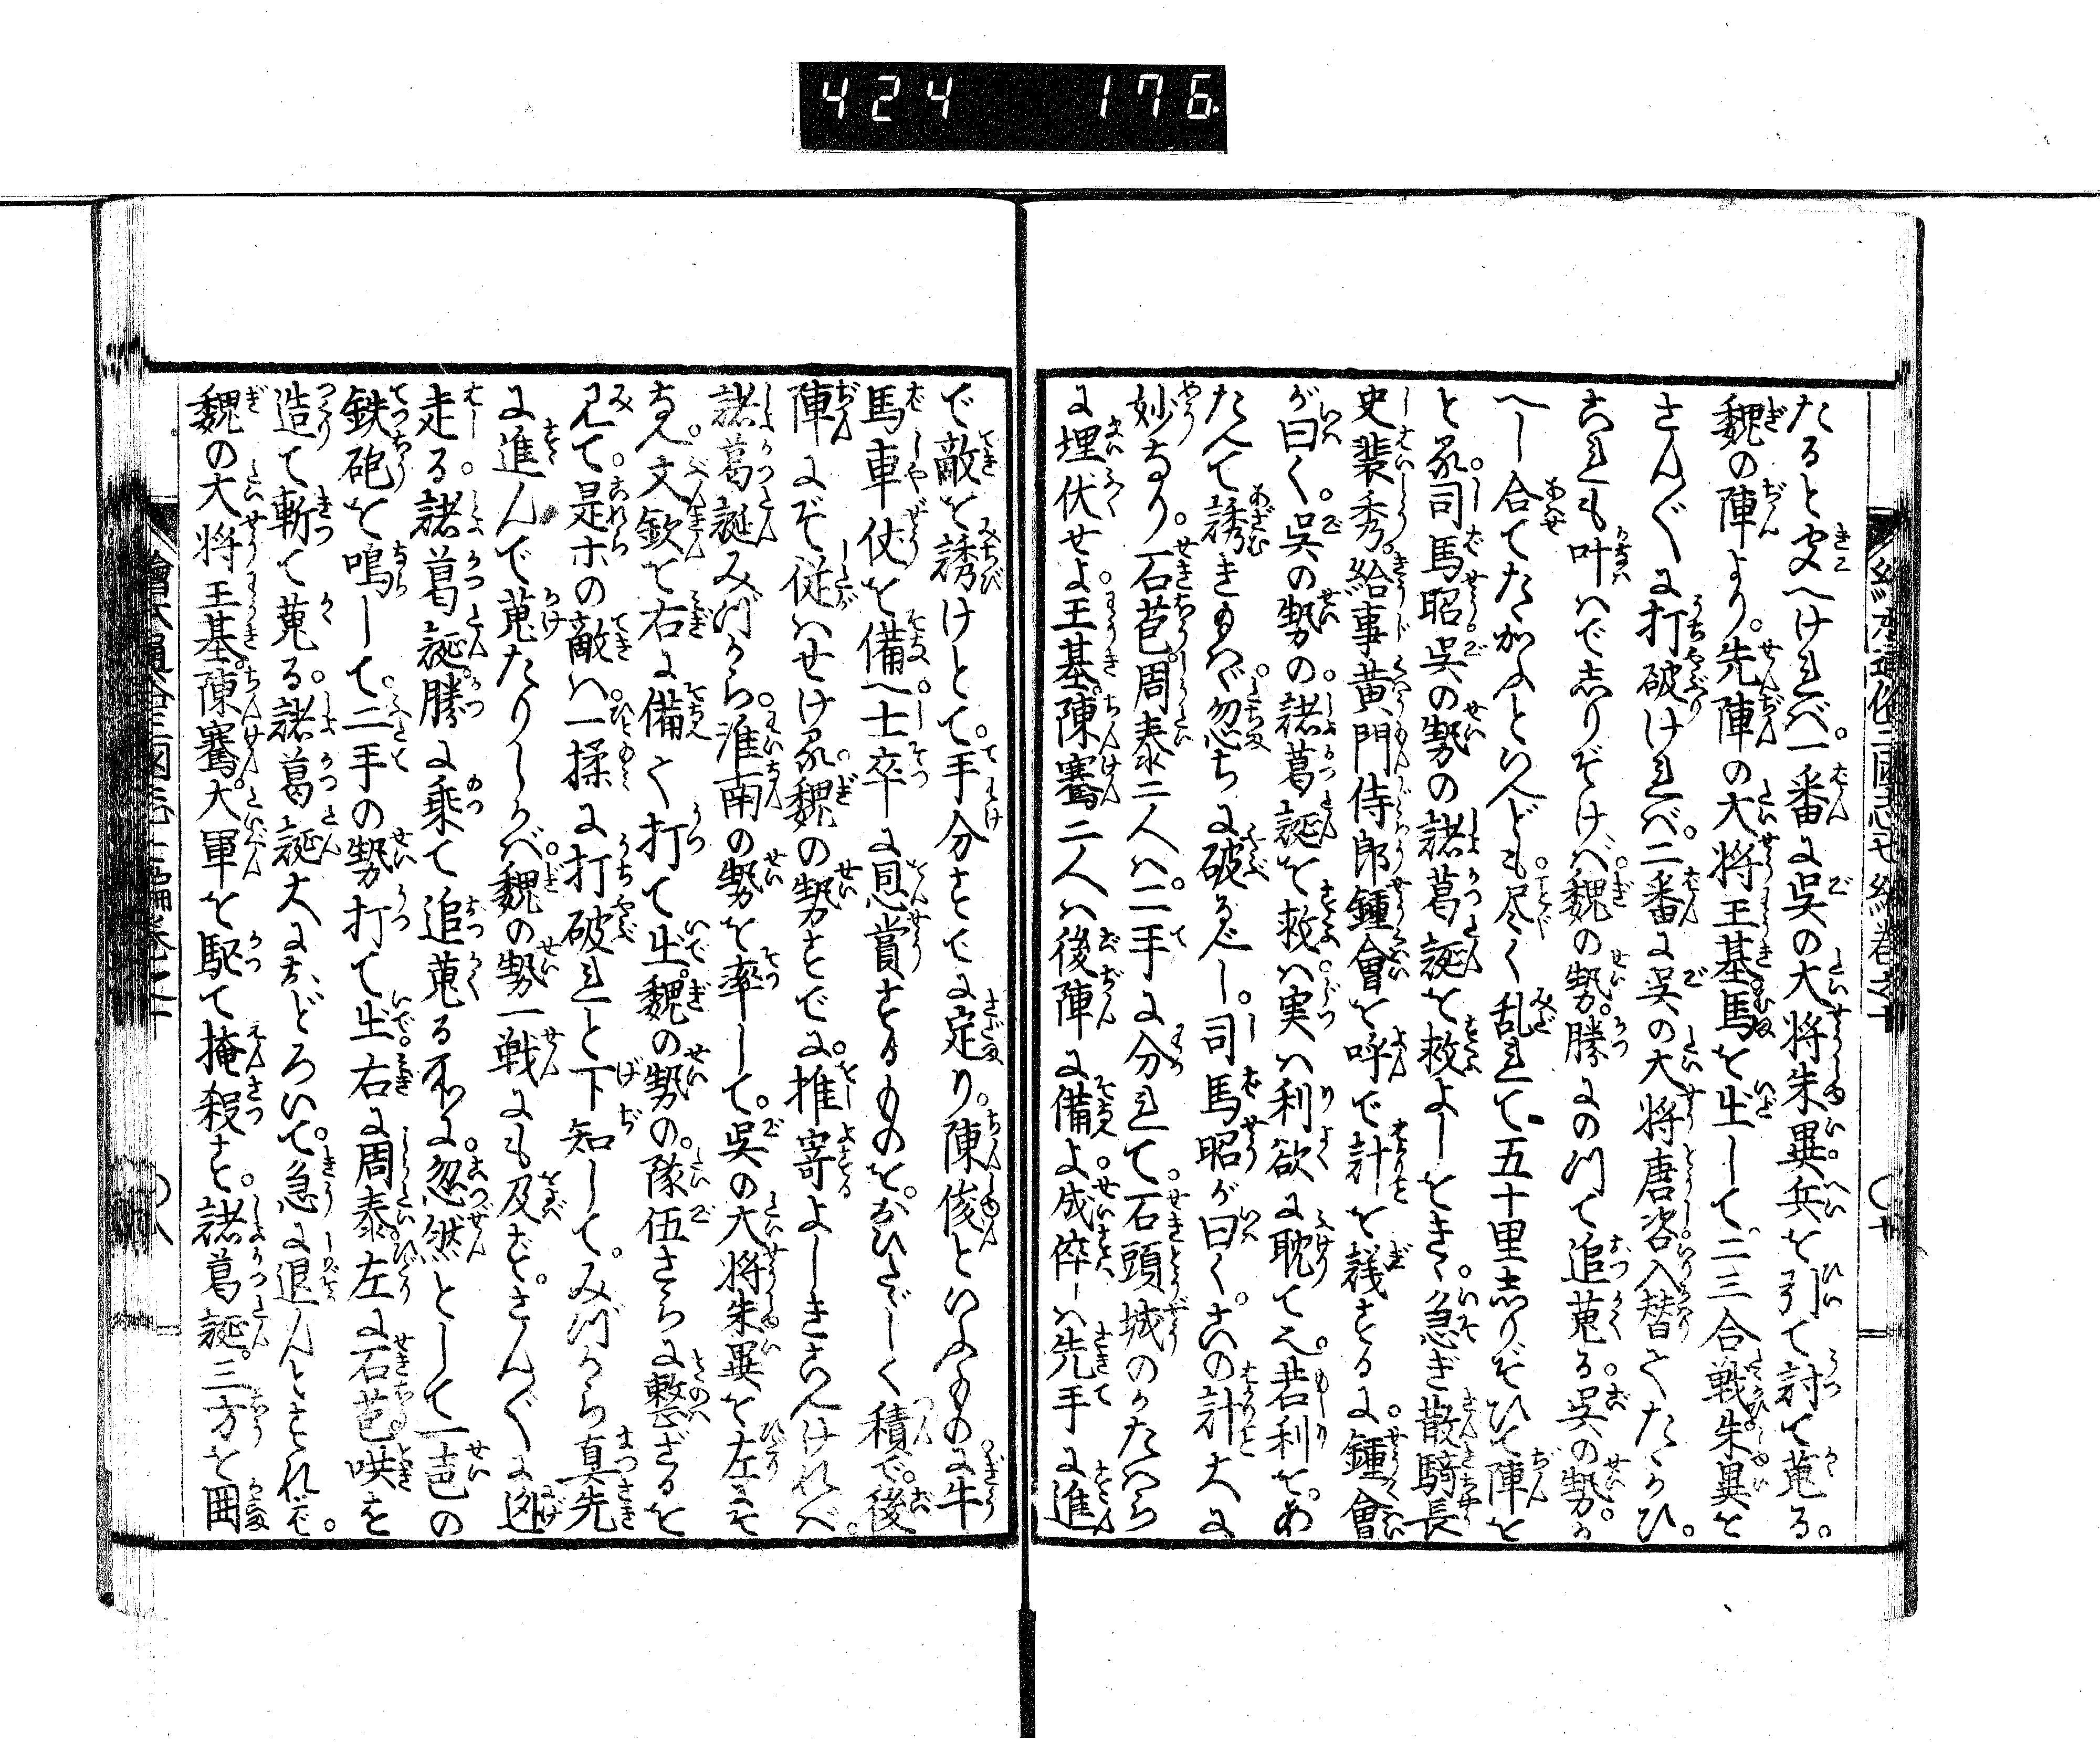 424 176
たると聞へければ。一番に呉の大将朱異兵を引て討て蒐る。
魏の陣より。先陣の大将王基馬を出して。二三合戦。朱異を
さん〴〵に打破ければ。二番に呉の大将唐咨入替てたゝかひ。
これも叶はで志りぞけば。魏の勢。勝にのつて追蒐る。呉の勢。
へし合てたゝかふといへども。尽く乱れて。五十里志りぞひて陣を
とる。司馬昭呉の勢の諸葛誕を救よしをきゝ。急ぎ散騎長
史裴秀。給事黄門侍郎鍾會を呼で計を議するに。鍾會
が曰く。呉の勢の。諸葛誕を救は。実は利欲に耽てん。若利を。あ
たへて誘きゆかば。忽ちに破るべし。司馬昭が曰く。この計大に
妙なり。石苞。周泰二人は。二手に分れて。石頭城のかたはら
に埋伏せよ。王基。陳騫二人は後陣に備よ。成倅は先手に進
で敵を誘けとて。手分すでに定り。陳俊といふものに牛
馬車仗を備へ。士卒に恩賞するものを。おひたゞしく積で。後
陣にぞ従はせける。魏の勢すでに。推寄よしきこへければ。
諸葛誕みづから。淮南の勢を率して。呉の大将朱異を左にそ
なへ。文欽を右に備て打て出。魏の勢の。隊伍さらに整ざるを
見て。是ホの敵は。一揉に打破れと下知して。みづから真先
に進んで蒐たりしかば。魏の勢一戦にも及ばず。さん〴〵に逃
走る。諸葛誕。勝に乗て追蒐る所に。忽然として一声の
鉄砲を鳴して。二手の勢打て出。右に周泰。左に石苞。哄を
造て斬て蒐る。諸葛誕大におどろいて。急に退んとすれば。
魏の大将王基。陳騫。大軍を駆て掩殺す。諸葛誕。三方を囲